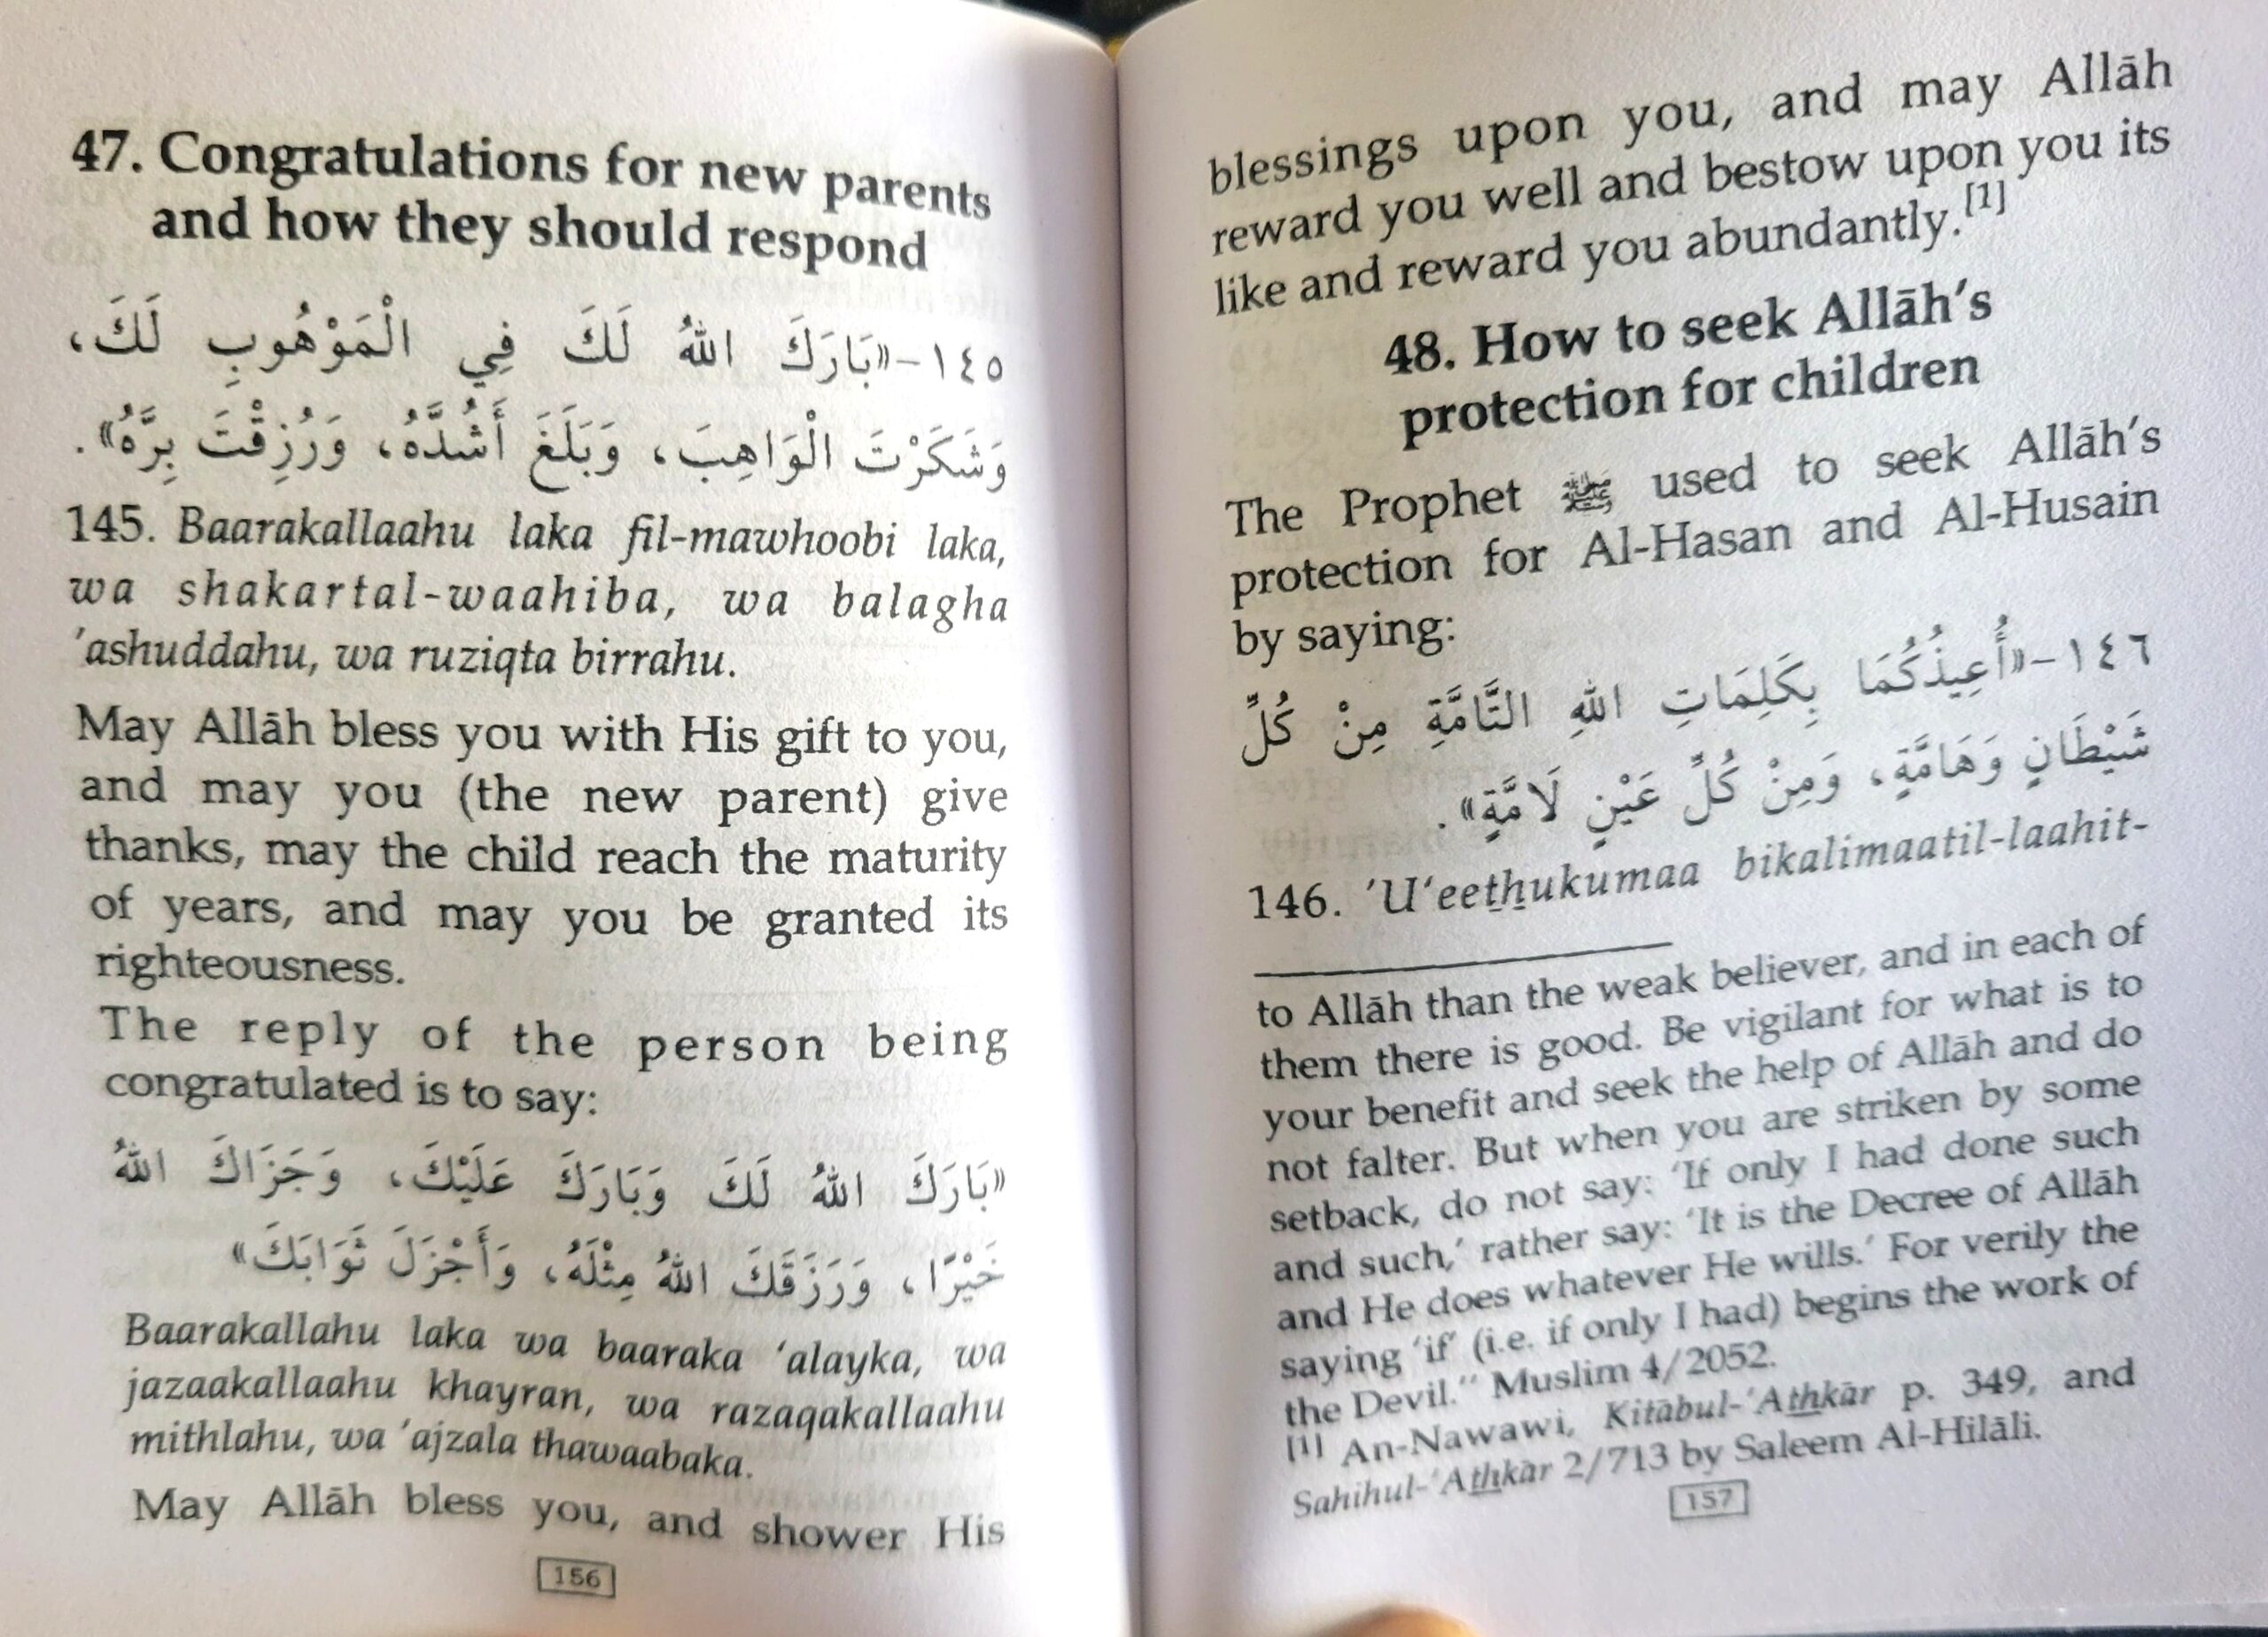 47. Congratulations for new parents
and how they should respond
١٤٥-«بَارَكَ اللهُ لَكَ فِي الْمَوْهُوبِ لَكَ،
وَشَكَرْتَ الْوَاهِبَ، وَبَلَغَ أَشُدَّهُ، وَرُزِقْتَ بِرَّهُ».
145. Baarakallaahu laka fil-mawhoobi laka,
wa shakartal-waahiba, wa balagha
'ashuddahu, wa ruziqta birrahu.
May Allāh bless you with His gift to you,
and may you (the new parent) give
thanks, may the child reach the maturity
of years, and may you be granted its
righteousness.
The reply of the person being
congratulated is to say:
«بَارَكَ اللهُ لَكَ وَبَارَكَ عَلَيْكَ، وَجَزَاكَ اللهُ
خَيْرًا، وَرَزَقَكَ اللهُ مِثْلَهُ، وَأَجْزَلَ ثَوَابَكَ»
Baarakallahu laka wa baaraka 'alayka, wa
jazaakallaahu khayran, wa razaqakallaahu
mithlahu, wa 'ajzala thawaabaka.
May Allāh bless you, and shower His
156
blessings upon you, and may Allāh
reward you well and bestow upon you its
like and reward you abundantly.[1]
48. How to seek Allāh's
protection for children
The Prophet ﷺ used to seek Allāh's
protection for Al-Hasan and Al-Husain
by saying:
١٤٦-«أُعِيذُكُمَا بِكَلِمَاتِ اللهِ التَّامَّةِ مِنْ كُلِّ
شَيْطَانٍ وَهَامَّةٍ، وَمِنْ كُلِّ عَيْنٍ لَامَّةٍ».
146. 'U'eethukumaa bikalimaatil-laahit-
to Allāh than the weak believer, and in each of
them there is good. Be vigilant for what is to
your benefit and seek the help of Allāh and do
not falter. But when you are striken by some
setback, do not say: 'If only I had done such
and such,' rather say: 'It is the Decree of Allāh
and He does whatever He wills.' For verily the
saying 'if' (i.e. if only I had) begins the work of
the Devil." Muslim 4/2052.
[1] An-Nawawi, Kitābul-'Athkār p. 349, and
Sahihul-'Athkār 2/713 by Saleem Al-Hilāli.
157